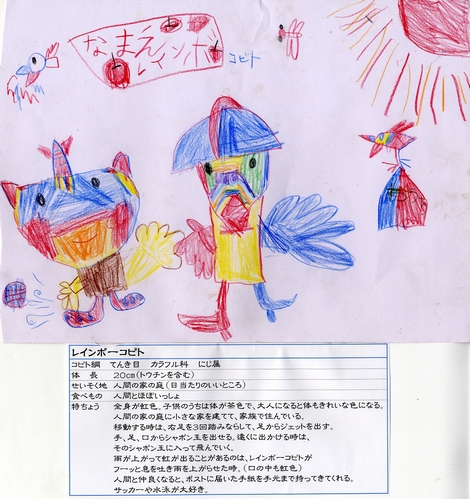 なまえ
レインボ
コビト
レインボーコビト
コビト綱 てんき目 カラフル科 にじ属
体 長 20cm(トウチンを含む)
せいそく地 人間の家の庭(日当たりのいいところ)
食べもの 人間とほぼいっしょ
特ちょう 全身が虹色。子供のうちは体が茶色で、大人になると体もきれいな色になる。
人間の家の庭に小さな家を建てて、家族で住んでいる。
移動する時は、右足を3回踏みならして、足からジェットを出す。
手、足、口からシャボン玉を出せる。遠くに出かける時は、
そのシャボン玉に入って飛んでいく。
雨が上がって虹が出ることがあるのは、レインボーコビトが
フーッと息を吐き雨を上がらせた時。(口の中も虹色)
人間と仲良くなると、ポストに届いた手紙を手元まで持ってきてくれる。
サッカーや水泳が大好き。